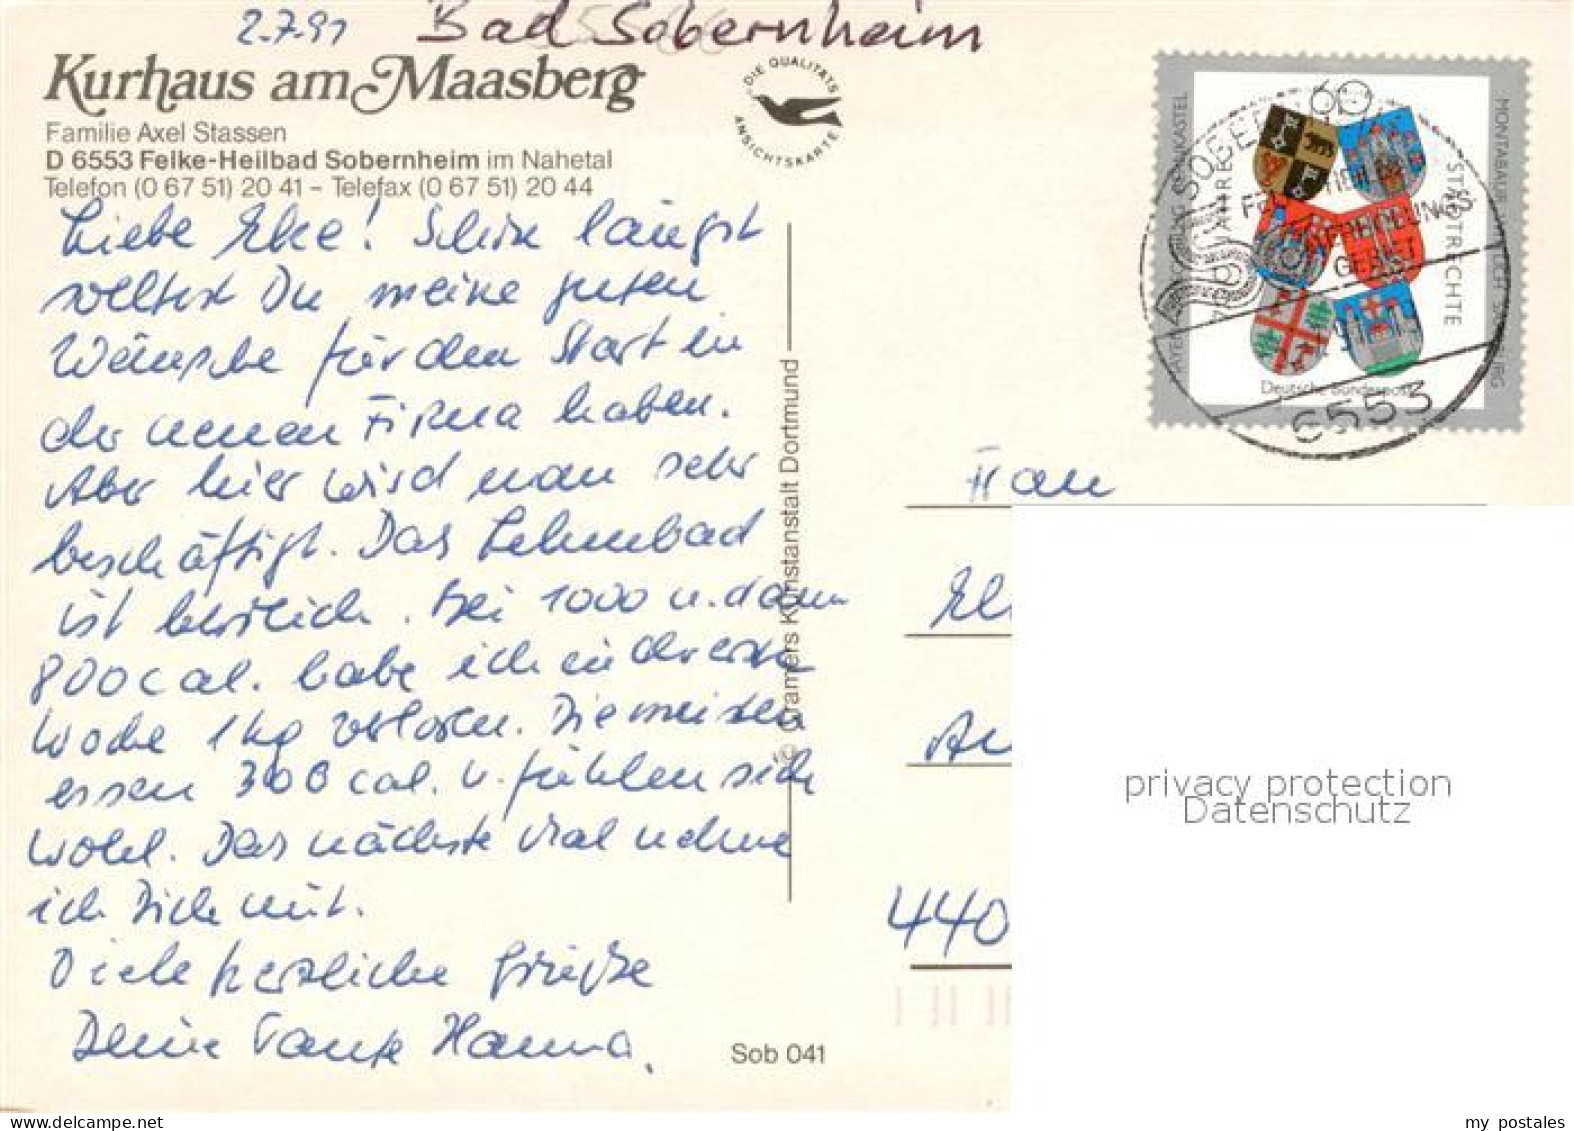 2.7.91 Bad Sobernheim
Kurhaus am Maasberg
Familie Axel Stassen
D 6553 Felke-Heilbad Sobernheim im Nahetal
Telefon (0 67 51) 20 41 – Telefax (0 67 51) 20 44
DIE QUALITÄTS
ANSICHTSKARTE
Liebe Elke! Schon längst
solltest Du meine guten
Wünsche für den Start in
der neuen Firma haben.
Aber hier wird man sehr
beschäftigt. Das Lehmbad
ist herrlich. Bei 1000 u. dann
800 cal. habe ich in der ersten
Woche 1 kg verloren. Die meisten
essen 300 cal. u. fühlen sich
wohl. Das nächste Mal nehme
ich Dich mit.
Viele herzliche Grüße
Deine Tante Hanna.
© Cramers Kunstanstalt Dortmund
Sob 041
60
STADTRECHTE
JAHRE
MONTABAUR
Deutsche Bundespost
SOBERNHEIM
6553
Frau
El
440
privacy protection
Datenschutz
my postales